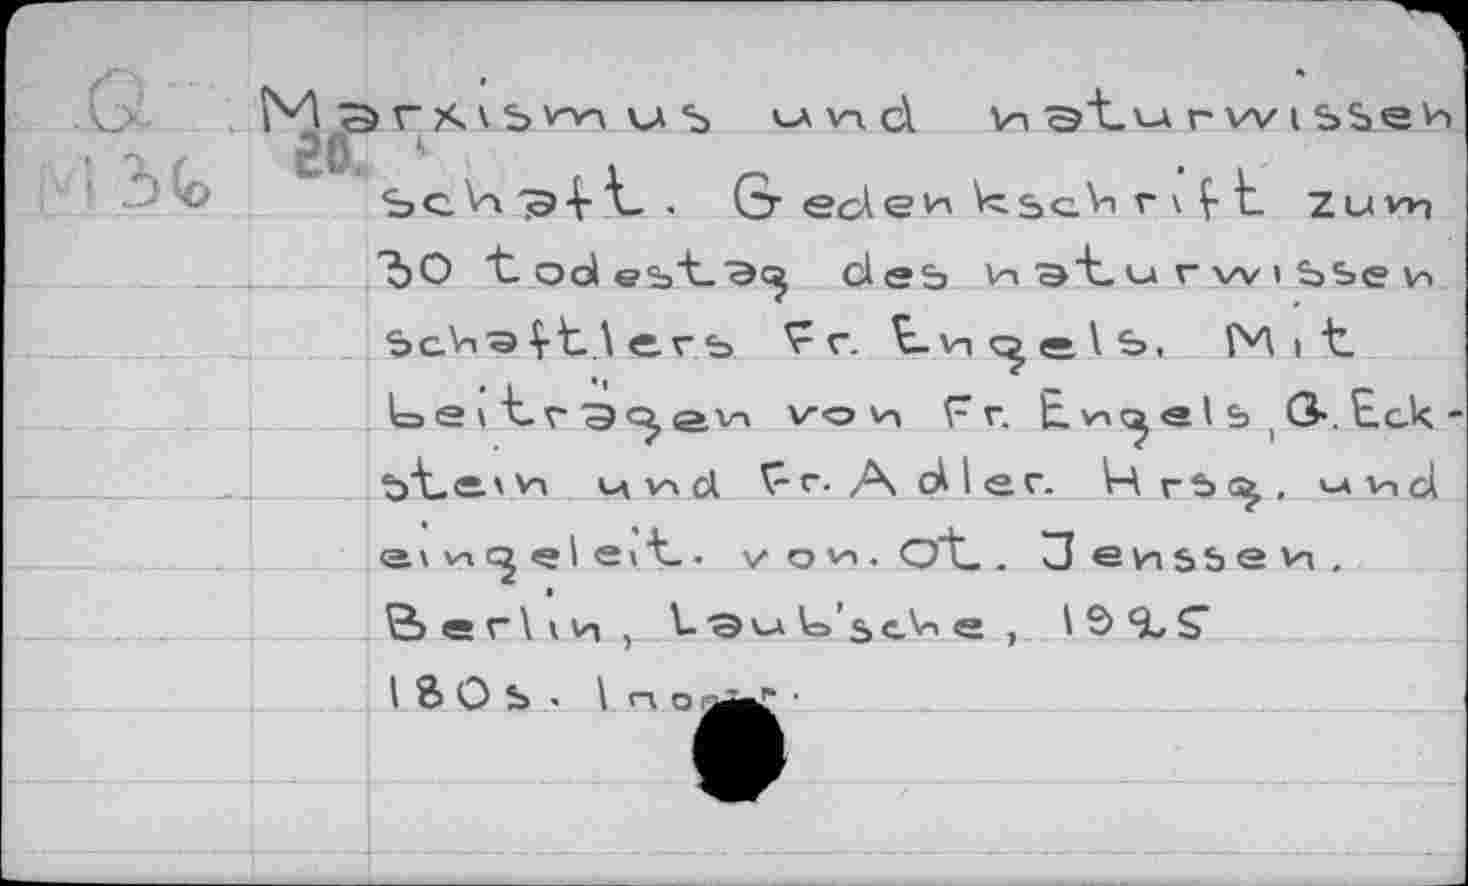 G Marxismus und naturwissen
M 36 20. schaft. Gedenkschrift zum
30 todestag des naturwissen
schaftlers Fr. Engels. Mit
beiträgen von Fr. Engels, G. Eck-
stein und Fr. Adler. Hrsg. und
eingeleit. von. Ot. Jenssen.
Berlin, Laub'sche, 1925
180 s.